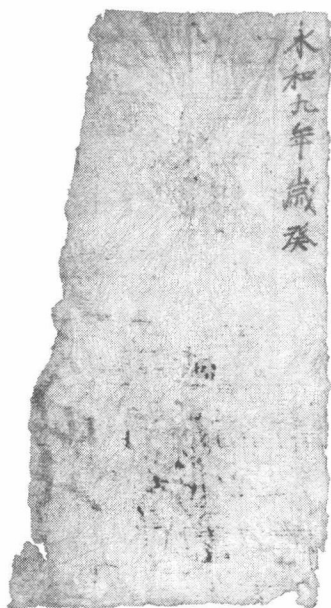 永和九年歲癸